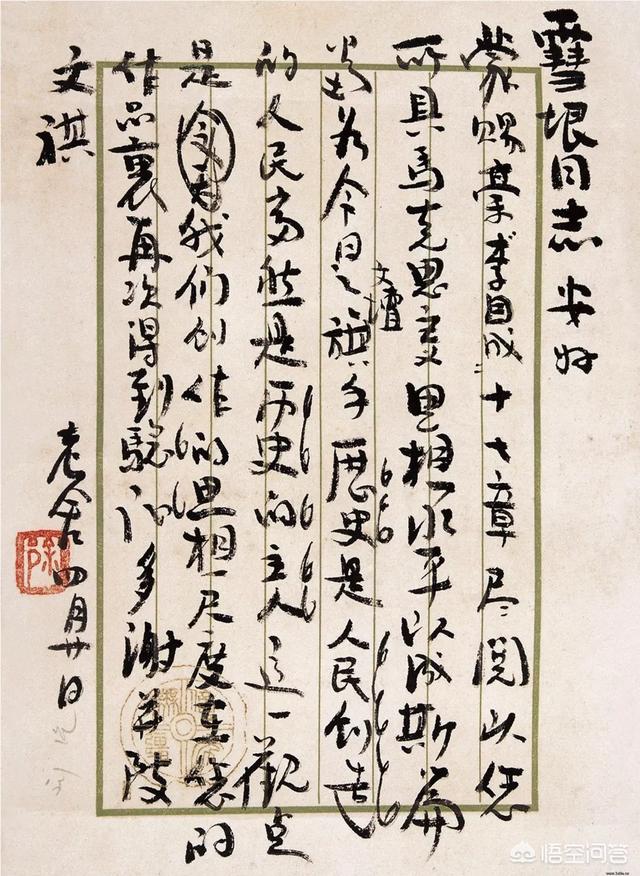 雪垠同志 安好
蒙赐李自成十七章尽阅以您
所具马克思主义思想水平以成斯篇
当为今日之文坛旗手歷史是人民创造
的人民当然是历史的主人这一觀点
是我们创作的思想尺度在您的
作品裏再次得到验证多谢并致
文祺
老舍四月廿日
悟空问答